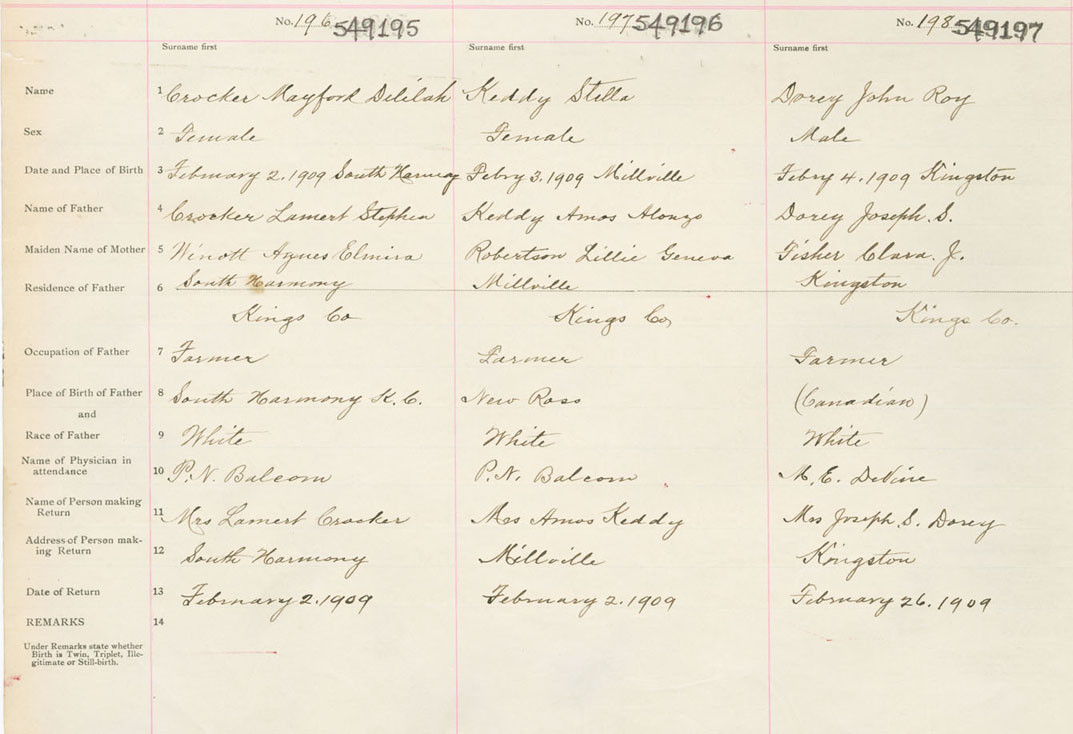 No. 196 549195 No. 197 549196 No. 198 549197
Surname first Surname first Surname first
Name 1 Crocker Mayford Delilah Keddy Stella Dorey John Roy
Sex 2 Female Female Male
Date and Place of Birth 3 February 2. 1909 South Harmony Febry 3. 1909 Millville Febry 4. 1909 Kingston
Name of Father 4 Crocker Lamert Stephen Keddy Amos Alonzo Dorey Joseph. S.
Maiden Name of Mother 5 Winott Agnes Elmira Robertson Lillie Geneva Fisher Clara. J.
Residence of Father 6 South Harmony Millville Kingston
Kings Co Kings Co, Kings Co.
Occupation of Father 7 Farmer Farmer Farmer
Place of Birth of Father 8 South Harmony K. C. New Ross (Canadian)
and
Race of Father 9 White White White
Name of Physician in
attendance 10 P. N. Balcom P. N. Balcom M. E. DeVine
Name of Person making
Return 11 Mrs Lamert Crocker Mrs Amos Keddy Mrs Joseph. S. Dorey
Address of Person mak-
ing Return 12 South Harmony Millville Kingston
Date of Return 13 February 2. 1909 February 2. 1909 February 26. 1909
REMARKS 14
Under Remarks state whether
Birth is Twin, Triplet, Ille-
gitimate or Still-birth.